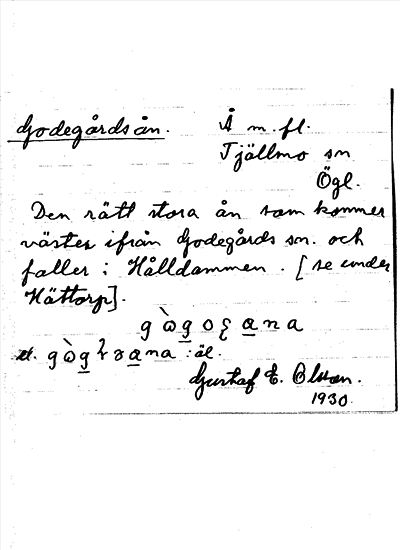 Godegårdsån. Å m.fl.
Tjällmo sn
Ögl.
Den rätt stora ån som kommer
väster ifrån Godegårds sn. och
faller i Hålldammen. [se under
Hättorp].
: äl.
Gustaf E. Olsson.
1930